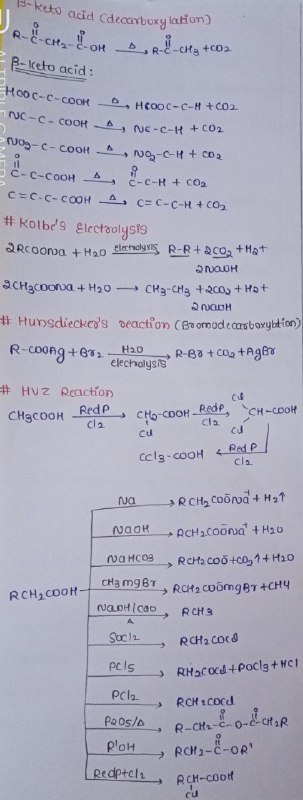 β-keto acid (decarboxylation)
O O O
R-C-CH2-C-OH Δ→ R-C-CH3 + CO2
β-keto acid:
HOOC-C-COOH Δ→ HOOC-C-H + CO2
NC-C-COOH Δ→ NC-C-H + CO2
NO2-C-COOH Δ→ NO2-C-H + CO2
O O
C-C-COOH Δ→ C-C-H + CO2
C=C-C-COOH Δ→ C=C-C-H + CO2
# Kolbe's Electrolysis
2RCOONa + H2O electrolysis→ R-R + 2CO2 + H2+
2NaOH
2CH3COONa + H2O → CH3-CH3 + 2CO2 + H2+
2NaOH
# Hunsdiecker's reaction (Bromodecarboxylation)
R-COOAg + Br2 H2O→ R-Br + CO2 + AgBr
electrolysis
# HVZ Reaction
CH3COOH Red P / Cl2→ CH2-COOH Red P / Cl2→ CH-COOH
Cl Cl Cl
CCl3-COOH ← Red P / Cl2
Na → RCH2COO-Na+ + H2↑
NaOH → RCH2COO-Na+ + H2O
NaHCO3 → RCH2COO- + CO2↑ + H2O
RCH2COOH CH3MgBr → RCH2COO-MgBr + CH4
NaOH/CaO Δ → RCH3
SOCl2 → RCH2COCl
PCl5 → RH2COCl + POCl3 + HCl
PCl2 → RCH2COCl
P2O5/Δ → R-CH2-C-O-C-CH2R
O O
R'OH → RCH2-C-OR'
O
Red P + Cl2 → RCH-COOH
Cl